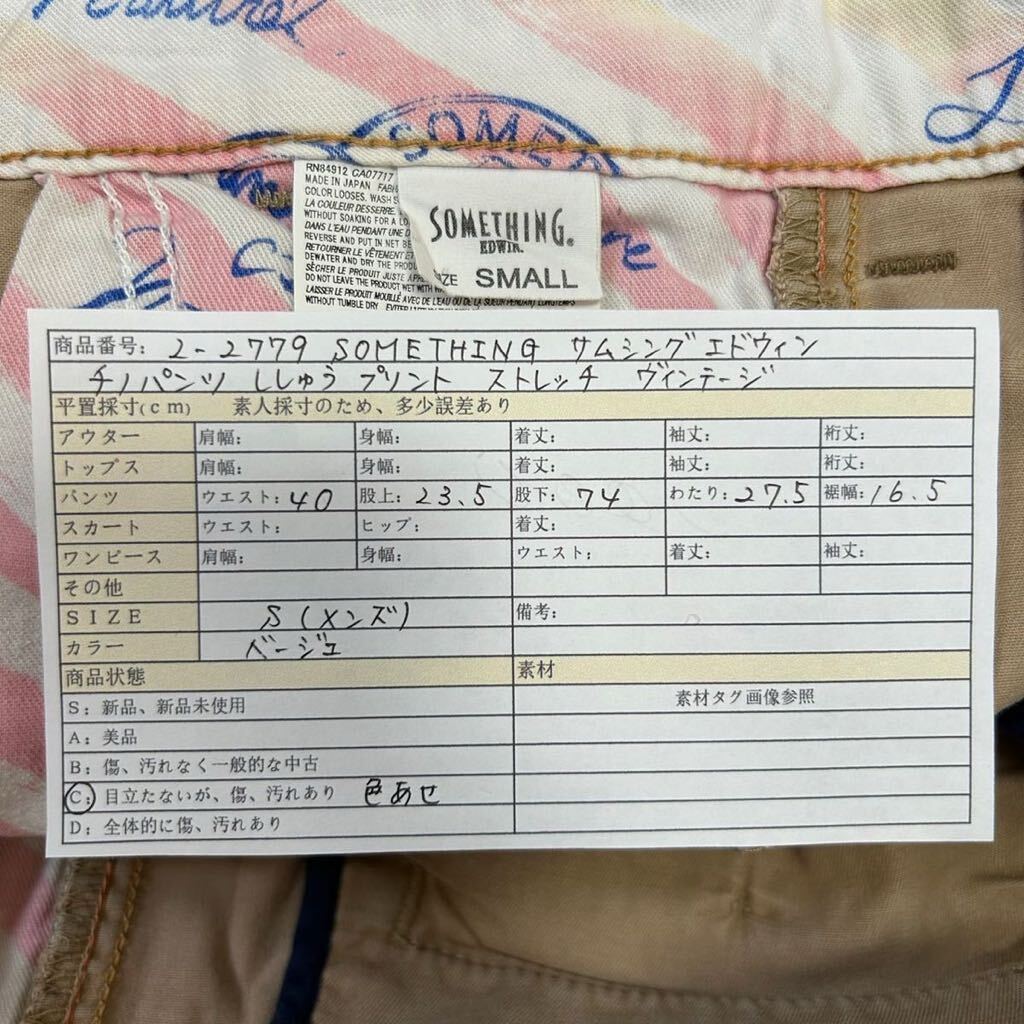 SOME
RN84912 CA07717
MADE IN JAPAN
COLOR LOOSES. WASH S
LA COULEUR DESSERRE.
WITHOUT SOAKING FOR A LO
DANS L'EAU PENDANT UNE D
REVERSE AND PUT IN NET BE
RETOURNER LE VÊTEMENT ET
DEWATER AND DRY THE PRODU
SÉCHER LE PRODUIT JUSTE APR
DO NOT LEAVE THE PRODUCT WET WITH
LAISSER LE PRODUIT MOUILLÉ AVEC DE L'EAU OU DE LA SUEUR PENDANT LONGTEMPS
WITHOUT TUMBLE DRY
SOMETHING®
EDWIN
SMALL
商品番号: 2-2779 SOMETHING サムシングエドウィン
チノパンツ ししゅう プリント ストレッチ ヴィンテージ
平置採寸(cm) 素人採寸のため、多少誤差あり
アウター 肩幅: 身幅: 着丈: 袖丈: 裄丈:
トップス 肩幅: 身幅: 着丈: 袖丈: 裄丈:
パンツ ウエスト: 40 股上: 23.5 股下: 74 わたり: 27.5 裾幅: 16.5
スカート ウエスト: ヒップ: 着丈:
ワンピース 肩幅: 身幅: ウエスト: 着丈: 袖丈:
その他
SIZE S(メンズ) 備考:
カラー ベージュ
商品状態 素材
S: 新品、新品未使用 素材タグ画像参照
A: 美品
B: 傷、汚れなく一般的な中古
C: 目立たないが、傷、汚れあり 色あせ
D: 全体的に傷、汚れあり